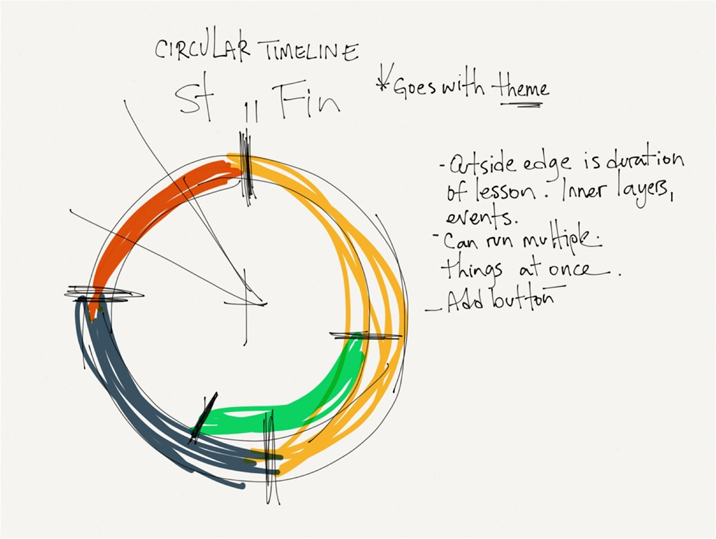 CIRCULAR TIMELINE
* Goes with theme
St || Fin
- Outside edge is duration
of lesson. Inner layers,
events.
- Can run multiple
things at once.
- Add button